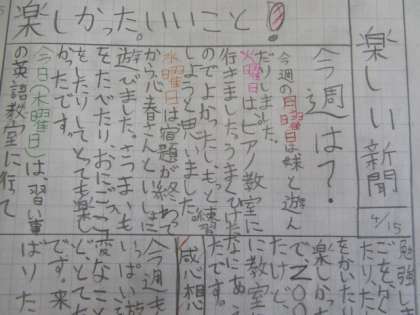 楽しかった。いいこと!
楽しい新聞
4/15
今週は?
今週の月曜日は妹と遊ん
だりしました。
火曜日はピアノ教室に
行きました。うまくひけた
のでよかったし、もっと練習
しようと思いました。
水曜日は宿題が終わって
から心春さんといっしょに
遊びました。さつまいも
をたべたり、おにごっこ
をしたりしてとっても楽し
かったです。
今日(木曜日)は、習い事
の英語教室に行って
勉強し
ごをかく
たり、た
をかいたり
楽しかった
で200
たけど、
に教室
なにあ
たです。
感心想
今週も
いっぱい遊
変なこと
どとてた
です。来
ばりた